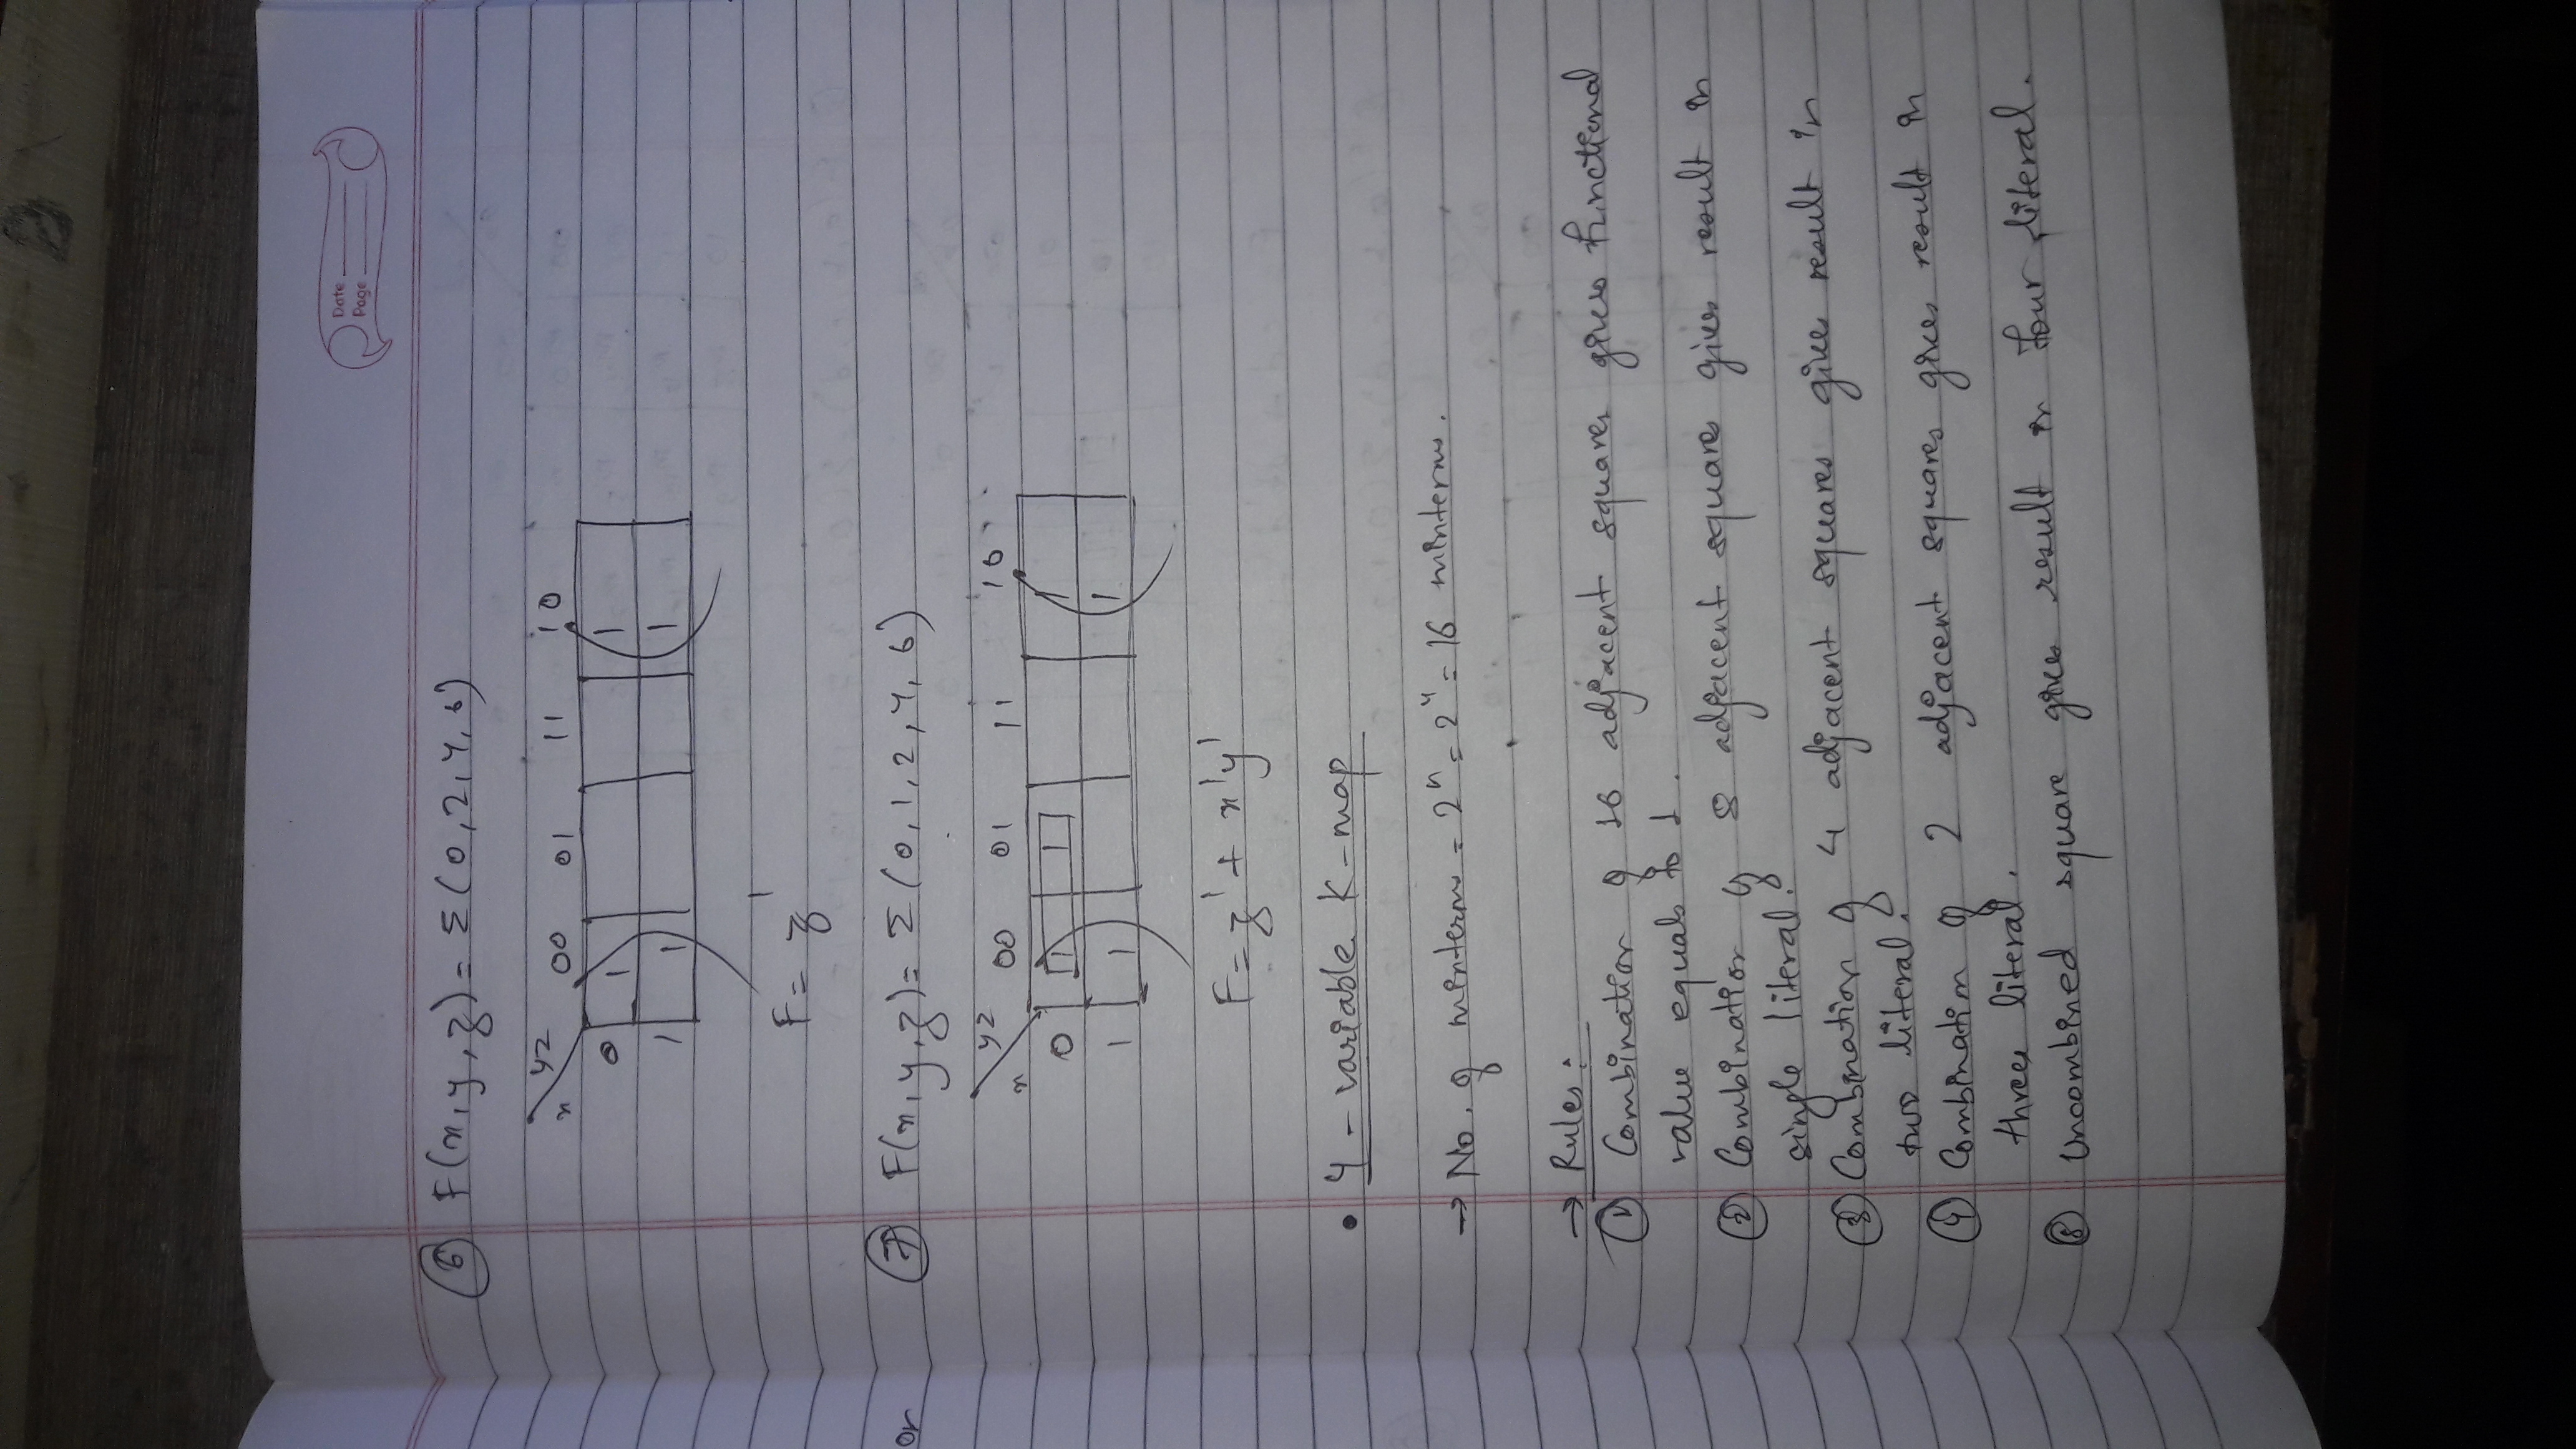 Date
Page
⑥ F(x,y,z) = Σ(0,2,4,6)
yz
x
00 01 11 10
0 1 1
1 1 1
F = z'
or
⑦ F(x,y,z) = Σ(0,1,2,4,6)
yz
x
00 01 11 10
0 1 1 1
1 1 1
F = z' + x'y'
• 4-variable K-map
→ No. of minterm = 2ⁿ = 2⁴ = 16 minterms.
→ Rules:
① Combination of 16 adjacent squares gives functional
value equals to 1.
② Combination of 8 adjacent squares gives result in
single literal.
③ Combination of 4 adjacent squares gives result in
two literal.
④ Combination of 2 adjacent squares gives result in
three literal.
⑤ Uncombined square gives result in four literal.